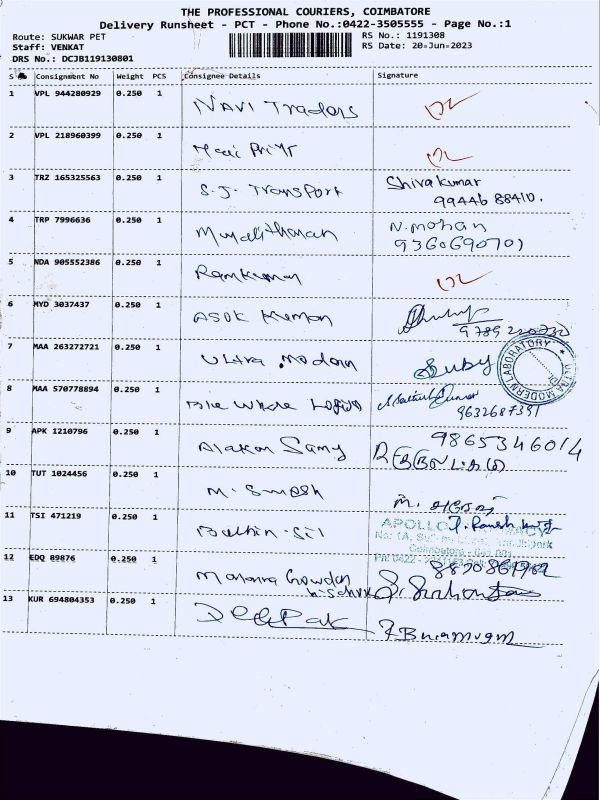 THE PROFESSIONAL COURIERS, COIMBATORE
Delivery Runsheet - PCT - Phone No.:0422-3505555 - Page No.:1
Route: SUKWAR PET RS No.: 1191308
Staff: VENKAT RS Date: 20-Jun-2023
DRS No.: DCJB119130801
S Consignment No Weight PCS Consignee Details Signature
1 VPL 944280929 0.250 1 NAVI Traders
2 VPL 218960399 0.250 1
3 TRZ 165325563 0.250 1 S.J. Transport Shivakumar
99446 88410.
4 TRP 7996636 0.250 1 N.mohan
9360690701
5 NDA 905552386 0.250 1 Ramkumar
6 MYD 3037437 0.250 1 ASOK Kumar
9789220732
7 MAA 263272721 0.250 1 Ultra Modern Suby
ULTRA MODERN LABORATORY
8 MAA 570778894 0.250 1 Blue Whale
9632687391
9 APK 1210796 0.250 1 Samy 9865346014
10 TUT 1024456 0.250 1 M. Suresh
11 TSI 471219 0.250 1
APOLLO PHARMACY
12 EDQ 89876 0.250 1
13 KUR 694804353 0.250 1 Deepak